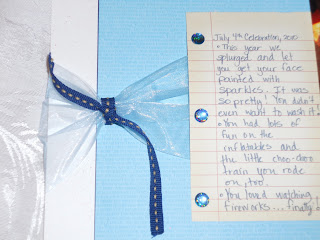 July 4th Celebration, 2010
• This year we
splurged and let
you get your face
painted with
sparkles. It was
so pretty! You didn't
even want to wash it!
• You had lots of
fun on the
inflatables and
the little choo-choo
train you rode
on, too.
• You loved watching
fireworks... finally!